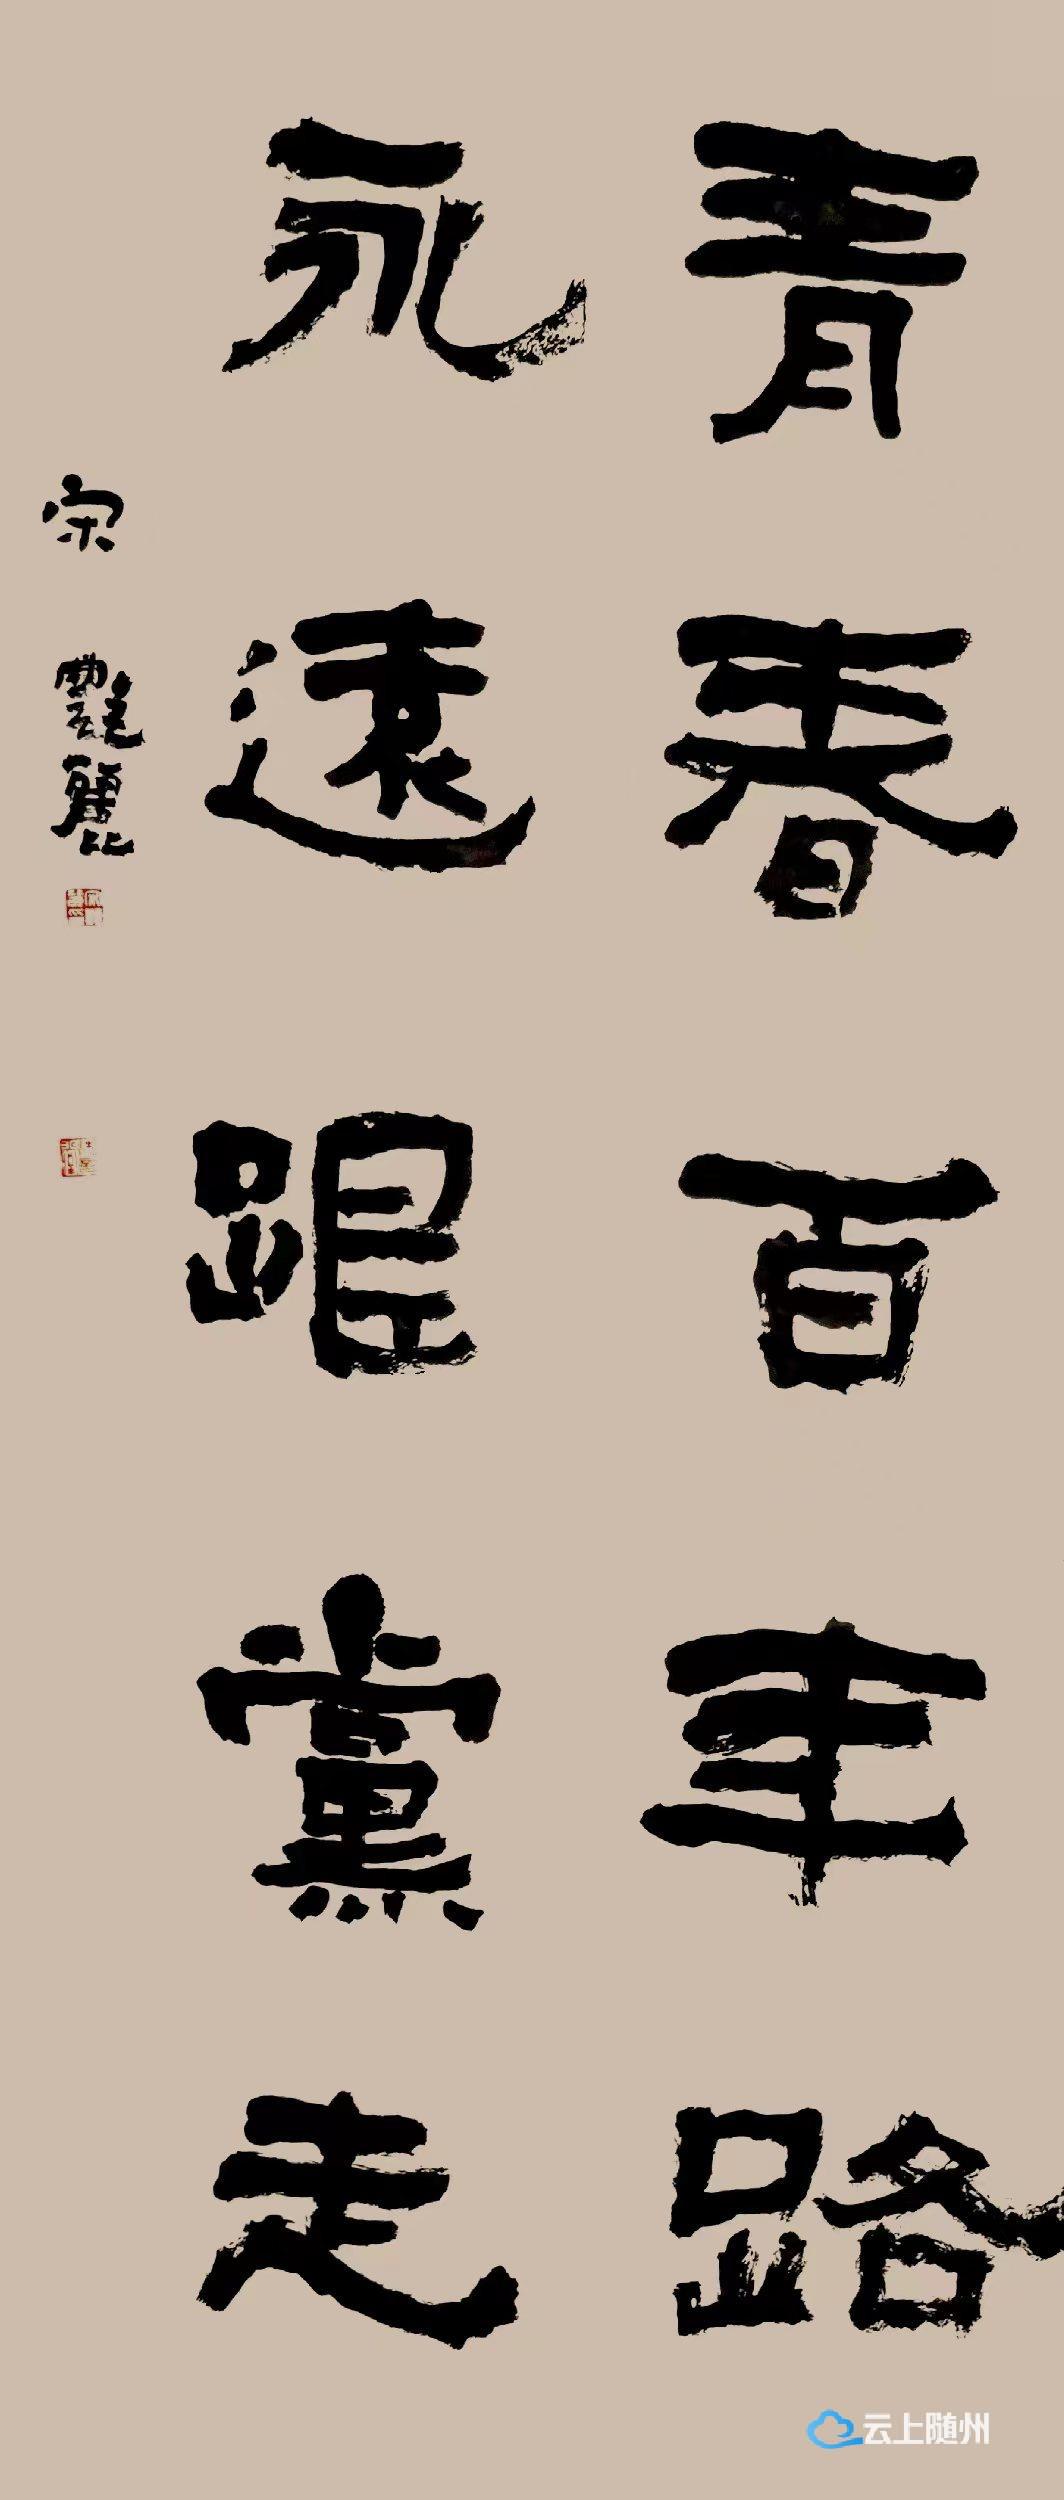 青春百年路
永遠跟黨走
宋
云上随州